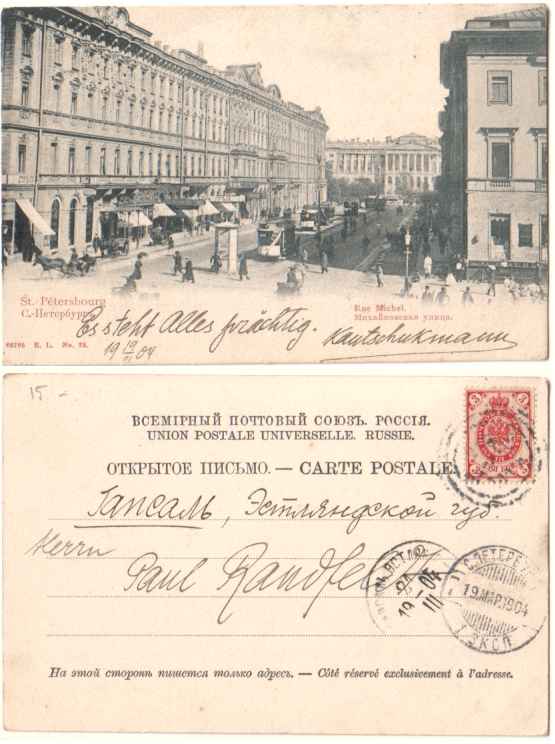 St. Pétersbourg
С.-Петербургъ
Rue Michel.
Михайловская улица.
Es steht Alles prächtig.
Kautschukmann
19 19/III 04
E. L. No. 72.
15 -
ВСЕМІРНЫЙ ПОЧТОВЫЙ СОЮЗЪ. РОССІЯ.
UNION POSTALE UNIVERSELLE. RUSSIE.
ОТКРЫТОЕ ПИСЬМО. — CARTE POSTALE.
3 3
Гапсаль, Эстляндской губ.
Herrn
Paul
19 04
III
С.ПЕТЕРБ
19 МАР 1904
1 ЭКСП
На этой сторонѣ пишется только адресъ. — Côté réservé exclusivement à l'adresse.